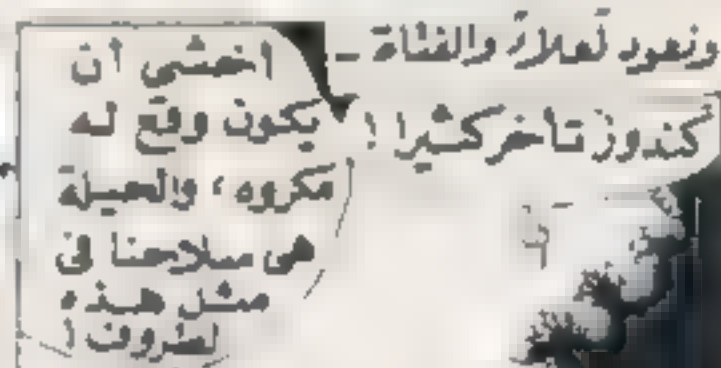 ونعود لعلاء والفتاة -
كندوز تأخر كثيرا !
اخشى أن
يكون وقع له
مكروه ، والحيلة
هى سلاحنا فى
مثل هذه
لظروف !